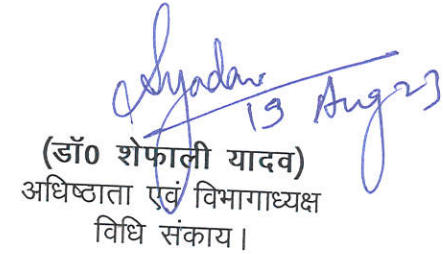 Syadav
19 Aug 23
(डॉ0 शेफाली यादव)
अधिष्ठाता एवं विभागाध्यक्ष
विधि संकाय।